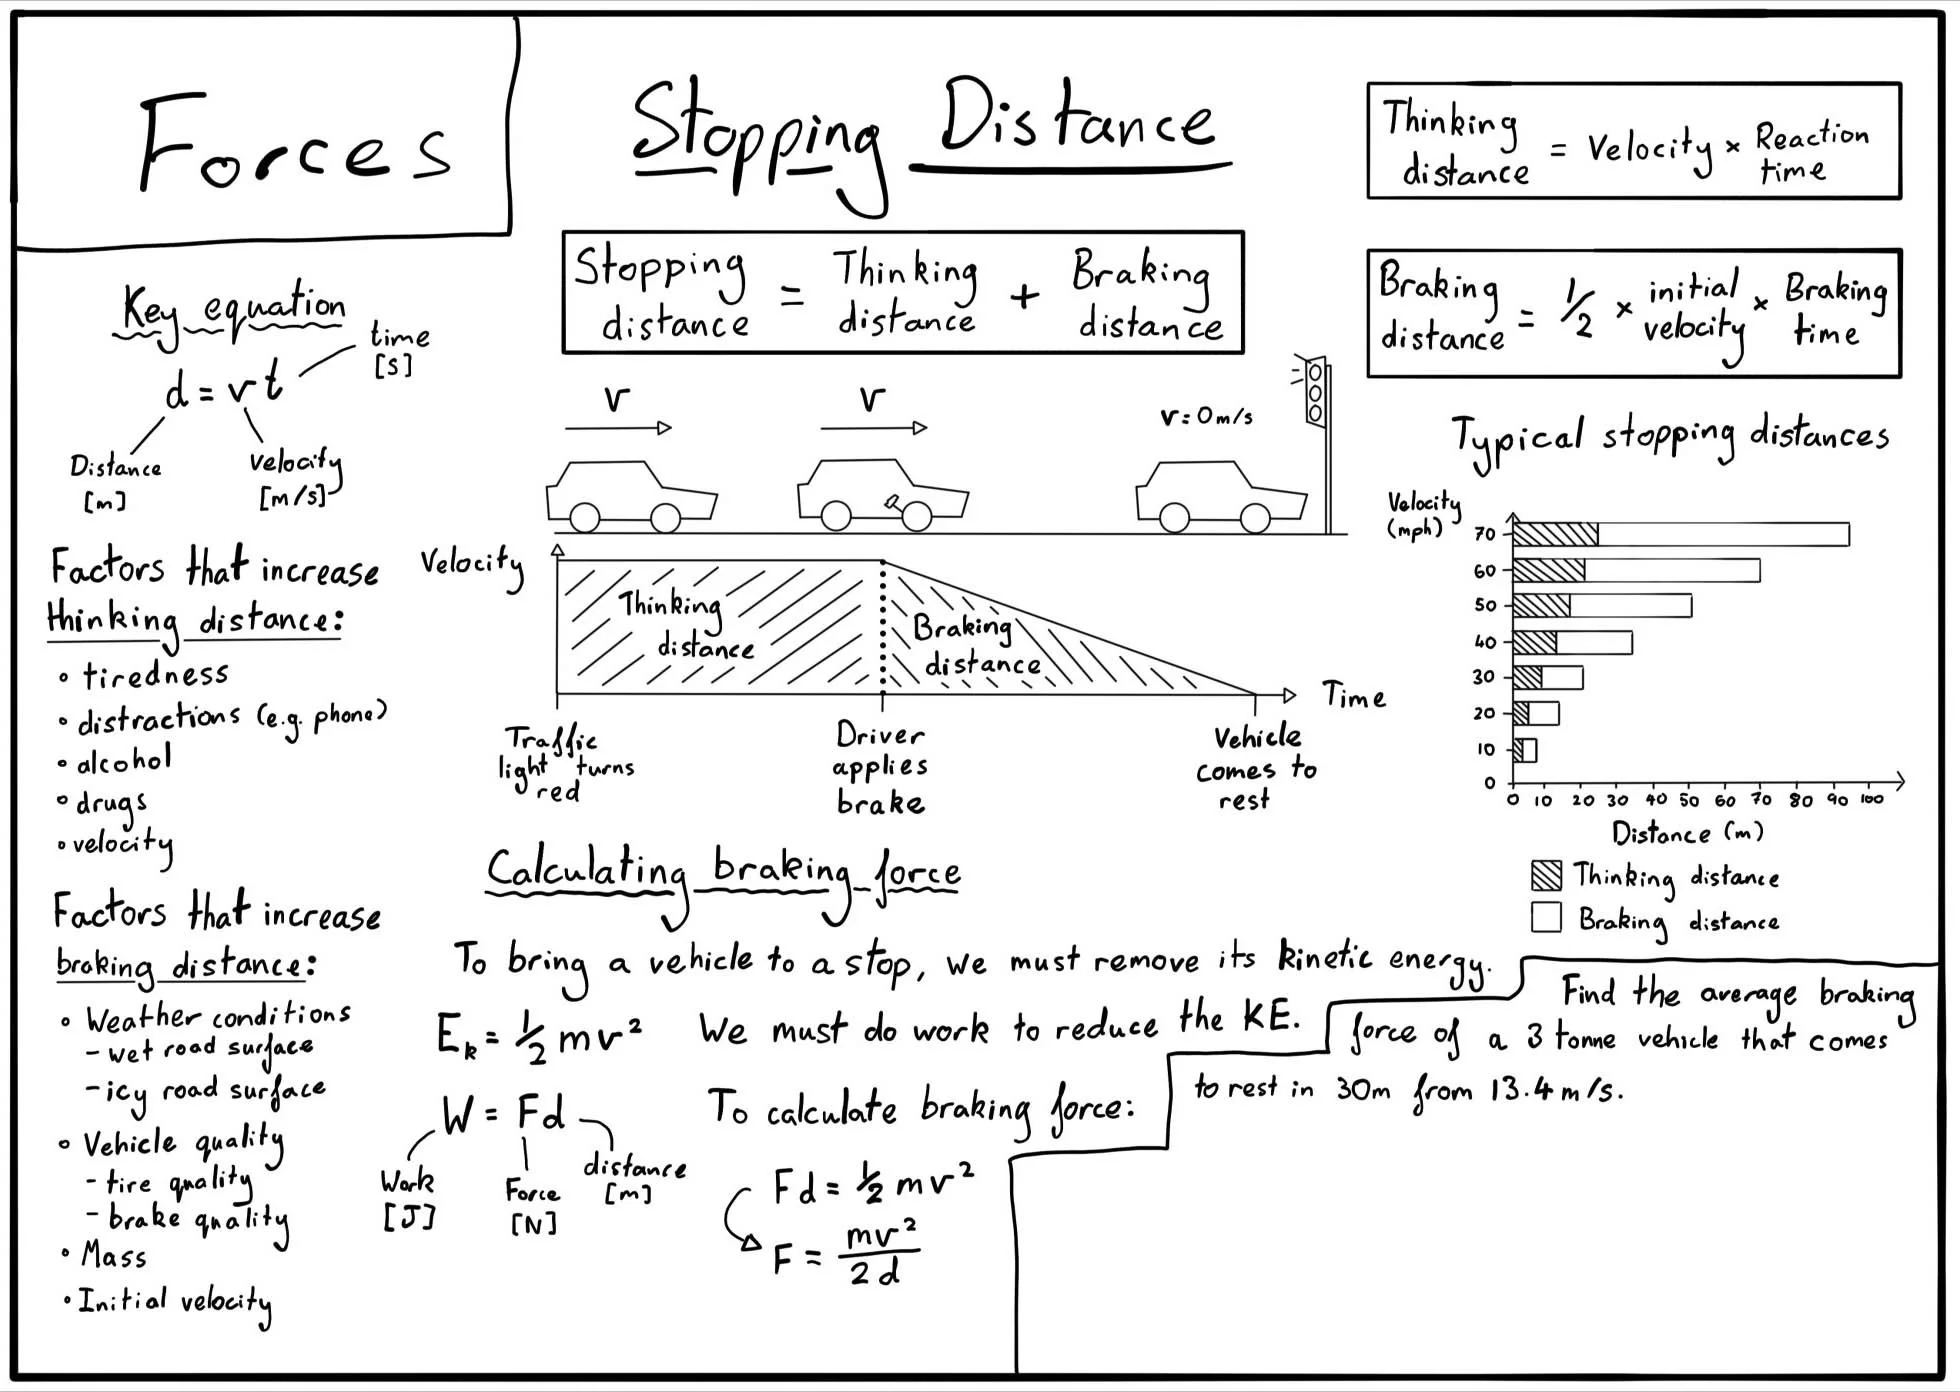 Forces
Stopping Distance
Thinking distance = Velocity × Reaction time
Stopping distance = Thinking distance + Braking distance
Braking distance = 1/2 × initial velocity × Braking time
Key equation
d = vt
time [s]
Distance [m]
Velocity [m/s]
Factors that increase
thinking distance:
• tiredness
• distractions (e.g. phone)
• alcohol
• drugs
• velocity
Factors that increase
braking distance:
• Weather conditions
- wet road surface
- icy road surface
• Vehicle quality
- tire quality
- brake quality
• Mass
• Initial velocity
v
v
v = 0m/s
Velocity
Thinking distance
Braking distance
Time
Traffic light turns red
Driver applies brake
Vehicle comes to rest
Typical stopping distances
Velocity (mph)
70
60
50
40
30
20
10
0
0 10 20 30 40 50 60 70 80 90 100
Distance (m)
Thinking distance
Braking distance
Calculating braking force
To bring a vehicle to a stop, we must remove its kinetic energy.
Ek = 1/2 mv² We must do work to reduce the KE.
W = Fd
Work [J]
Force [N]
distance [m]
To calculate braking force:
Fd = 1/2 mv²
F = mv²/2d
Find the average braking
force of a 3 tonne vehicle that comes
to rest in 30m from 13.4 m/s.